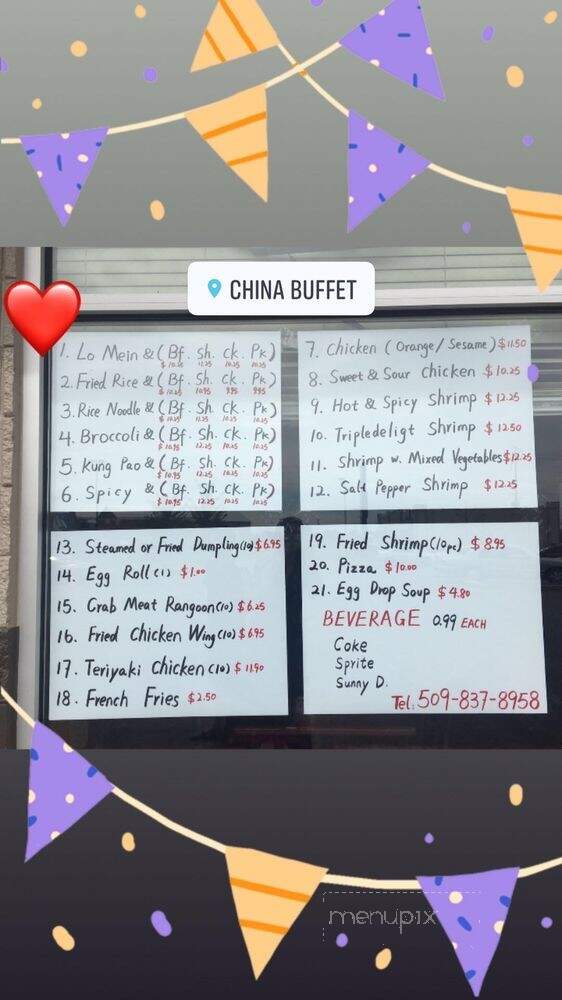 CHINA BUFFET
1. Lo Mein & (Bf. Sh. Ck. Pk)
$10.25 11.25 10.25 10.25
2. Fried Rice & (Bf. Sh. Ck. Pk)
10.95 9.95 9.95
3. Rice Noodle & (Bf. Sh. Ck. Pk)
4. Broccoli & (Bf. Sh. Ck. Pk)
$10.95 12.25 10.25 10.25
5. Kung Pao & (Bf. Sh. Ck. Pk)
$10.95 12.25 10.25 10.25
6. Spicy & (Bf. Sh. Ck. Pk)
$10.95 12.25 10.25 10.25
7. Chicken (Orange/Sesame) $11.50
8. Sweet & Sour chicken $10.25
9. Hot & Spicy Shrimp $12.25
10. Tripledeligt Shrimp $12.50
11. Shrimp w. Mixed Vegetables $12.25
12. Salt Pepper Shrimp $12.25
13. Steamed or Fried Dumpling (10) $6.95
14. Egg Roll (1) $1.00
15. Crab Meat Rangoon (10) $6.25
16. Fried Chicken Wing (10) $6.95
17. Teriyaki Chicken (10) $11.90
18. French Fries $2.50
19. Fried Shrimp (10pc) $8.95
20. Pizza $10.00
21. Egg Drop Soup $4.80
BEVERAGE 0.99 EACH
Coke
Sprite
Sunny D.
Tel. 509-837-8958
menupix